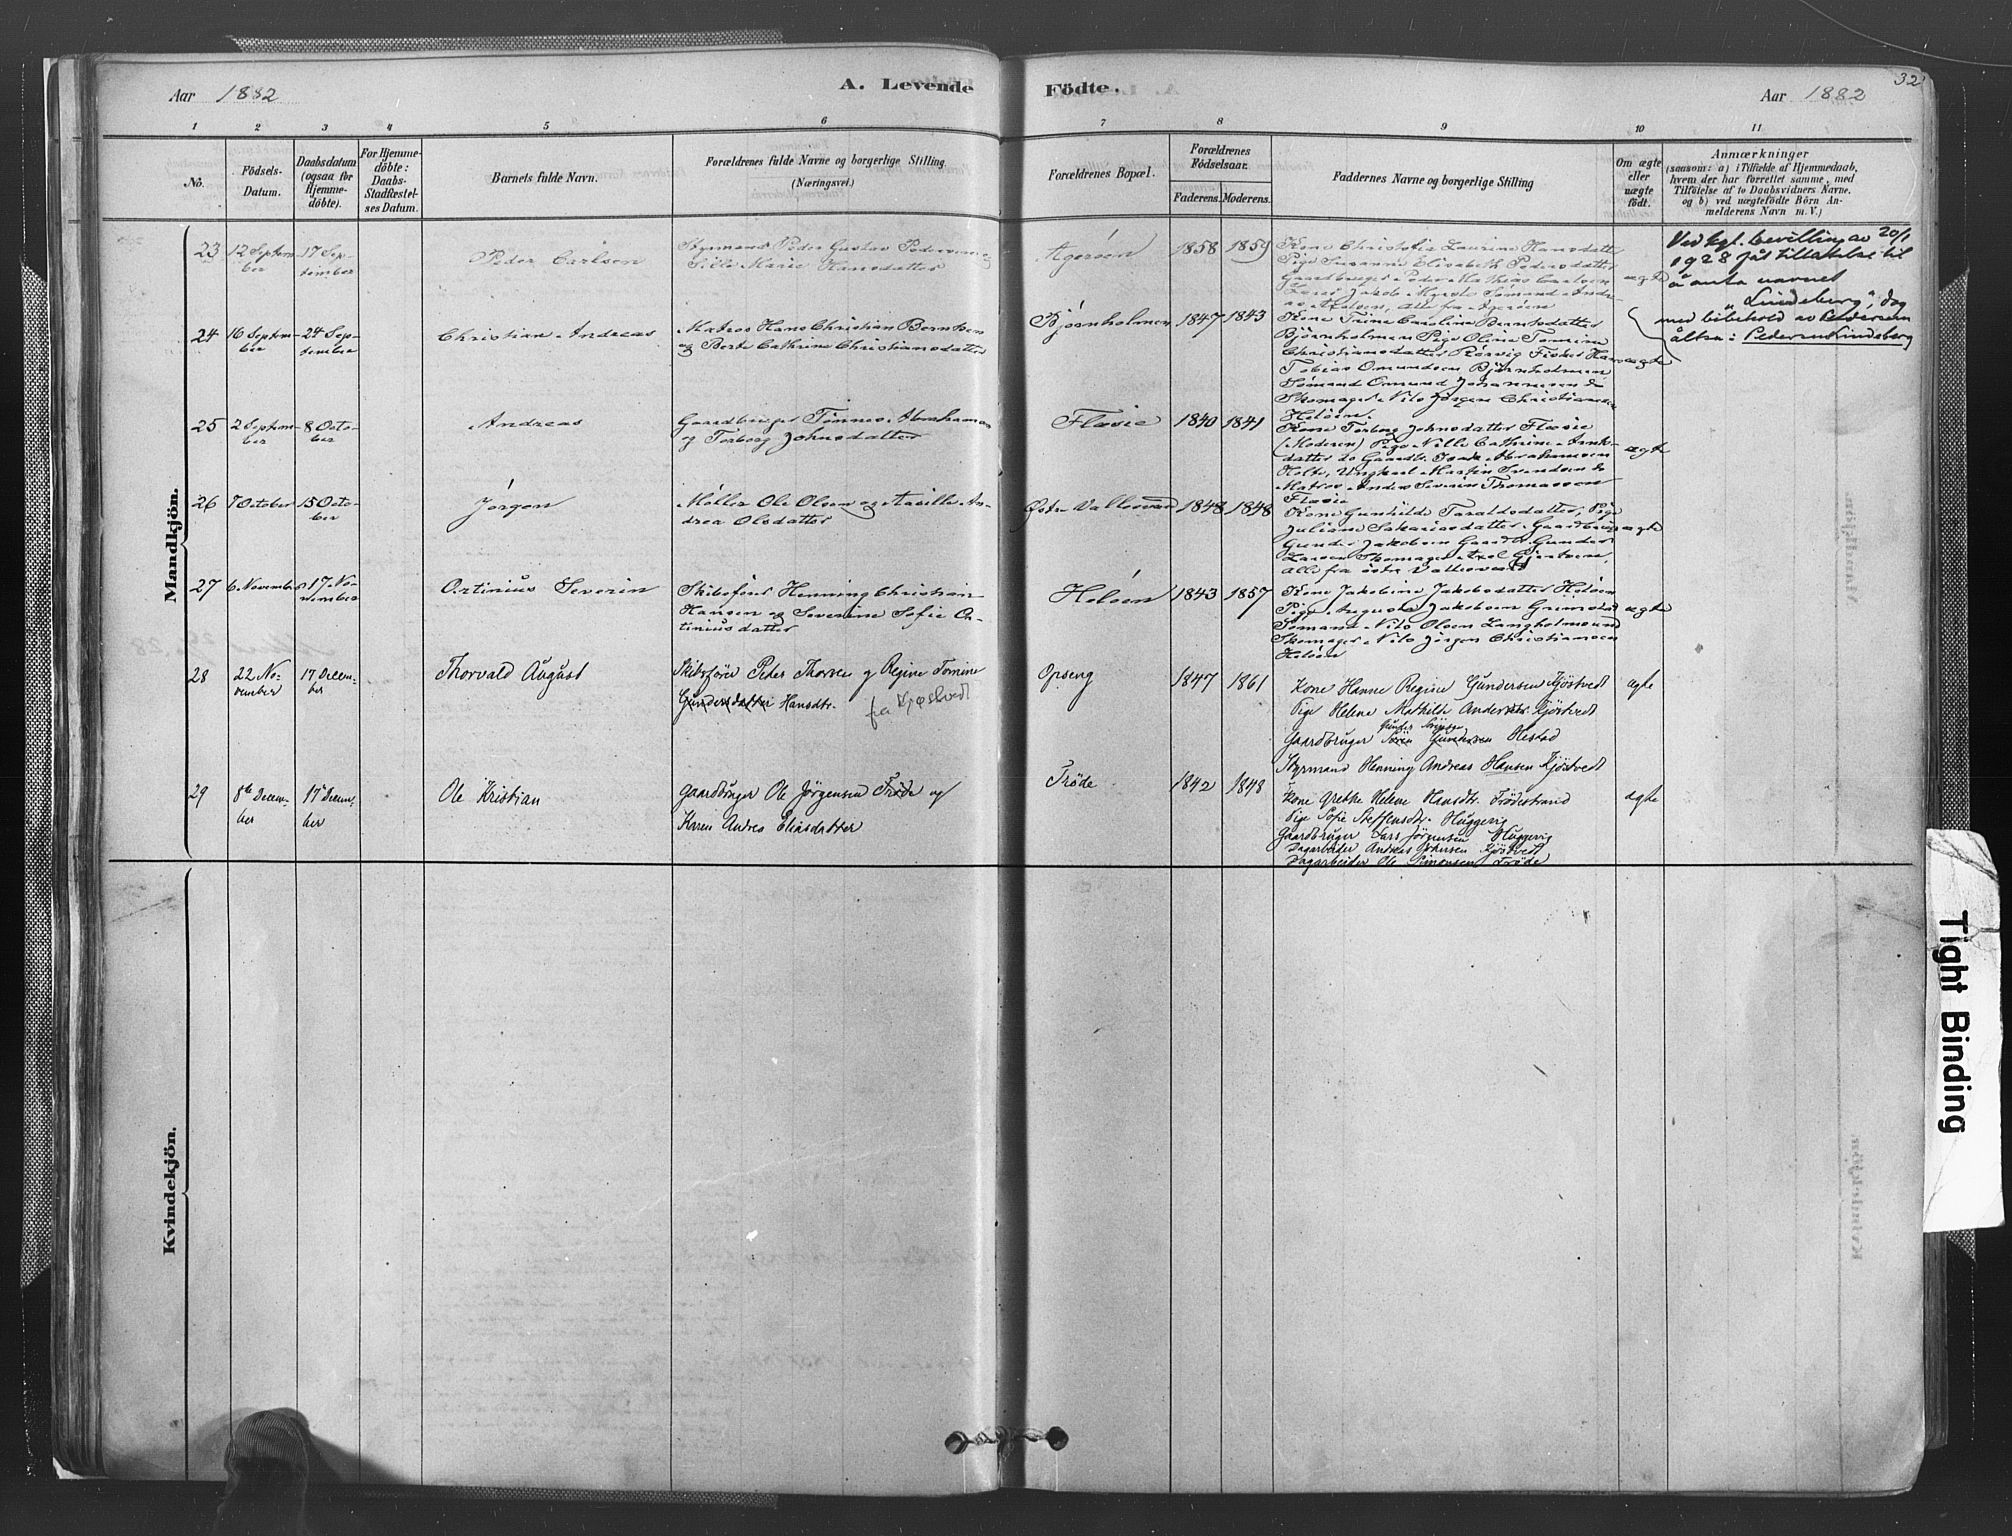 Aar 1882
A. Levende
Födte.
Aar 1882
32
1 2 3 4 5 6 7 8 9 10 11
No.
Födsels-
Datum.
Daabsdatum
(ogsaa for
Hjemme-
döbte).
For Hjemme-
döbte:
Daabs-
Stadfæstel-
ses Datum.
Barnets fulde Navn.
Forældrenes fulde Navne og borgerlige Stilling.
(Næringsvei.)
Forældrenes Bopæl.
Forældrenes
Födselsaar.
Faderens. Moderens.
Faddernes Navne og borgerlige Stilling
Om ægte
eller
uægte
födt.
Anmærkninger
(saasom: a) i Tilfælde af Hjemmedaab,
hvem der har forrettet samme, med
Tilföielse af to Daabsvidners Navne.
og b) ved uægtefödte Börn An-
melderens Navn m. V.)
Mandkjön.
23
12 Septem-
ber
17 Sep-
tember
Peder Carlsen
Styrmand Peder Gustav Pedersen og
Sille Marie Hansdatter
Agerøen
1858 1859
Kone Christofia Laurine Hansdatter
Pige Susanne Elisabeth Pedersdatter
Gaardbruger Peder Mathias Carlsen
Jakob Sømand Andre-
as Axelsen, Alle fra Agerøen
ægte
Ved kgl. bevilling av 20/1
1928 fåt tillatelse til
å anta navnet
"Lindeberg", dog
med bibehold av Pedersen
altså: Pedersen Lindeberg
24
16 Septem-
ber
24 Sep-
tember
Christian Andreas
Matros Hans Christian Berntsen
og Berte Cathrine Christiansdatter
Bjørnholmen
1847 1843
Kone Trine Caroline Berntsdatter
Bjørnholmen Pige Oline Tomine
Christiansdatter Rørvig Fisker Hans
Tobias Omundsen Bjørnholmen
Sømand Omund Johannesen do
Skomager Nils Jørgen Christiansen
Heløen.
ægte
25
2 Septem-
ber
8 Octo-
ber
Andreas
Gaardbruger Tønnes Abrahamsen
og Torborg Johnsdatter
Flæsie
1840 1841
Kone Torborg Johnsdatter Flæsie
(Moderen) Pige Nille Cathrine
datter do Gaardbr. Isak Abrahamsen
Holte, Ungkarl Martin Svendsen do
Matros Anders Severin Thomassen
Flæsie
ægte
26
7 October
15 Octo-
ber
Jørgen
Møller Ole Olsen og Assille An-
drea Olsdatter
Østre Vallesværd
1848 1848
Kone Gunhilde Taraldsdatter, Pige
Juliane Sakariasdatter Gaardbruger
Gunder Jakobsen Gaardbr. Gunder
Larsen Skomager Axel Gjertsen,
alle fra østre Vallesværd
ægte
27
6 November
17 No-
vember
Ortinius Severin
Skibsfører Henning Christian
Hansen og Severine Sofie Or-
tiniusdatter
Heløen
1843 1857
Kone Jakobine Jakobsdatter Heløen
Pige Auguste Jakobsen Grimstad
Sømand Nils Olsen Langholmsund
Skomager Nils Jørgen Christiansen
Heløen
ægte
28
22 No-
vember
17 Decem-
ber
Thorvald August
Skibsfører Peter Thorsen og Regine Tomine
Gundersdatter Hansdtr.
fra Kjøstvedt
Opseng
1847 1861
Kone Hanne Regine Gundersen Kjøstvedt
Pige Helene Mathilde Andersdtr. Kjöstvedt
Gunder Sörensen
Gaardbruger Sören Gundersen Hestad
Styrmand Henning Andreas Hansen Kjöstvedt
ægte
29
8de Decem-
ber
17 Decem-
ber
Ole Kristian
Gaardbruger Ole Jörgensen Trøde og
Karen Andrea Eliasdatter
Trøde
1842 1848
Kone Grethe Helene Hansdtr. Trödestrand
Pige Sofie Steffensdtr. Huggevig
Gaardbruger Lars Jörgensen Huggevig
Dagarbeider Andreas Kjöstvedt
Dagarbeider Ole Simonsen Trøde
ægte
Kvindekjön.
Tight Binding